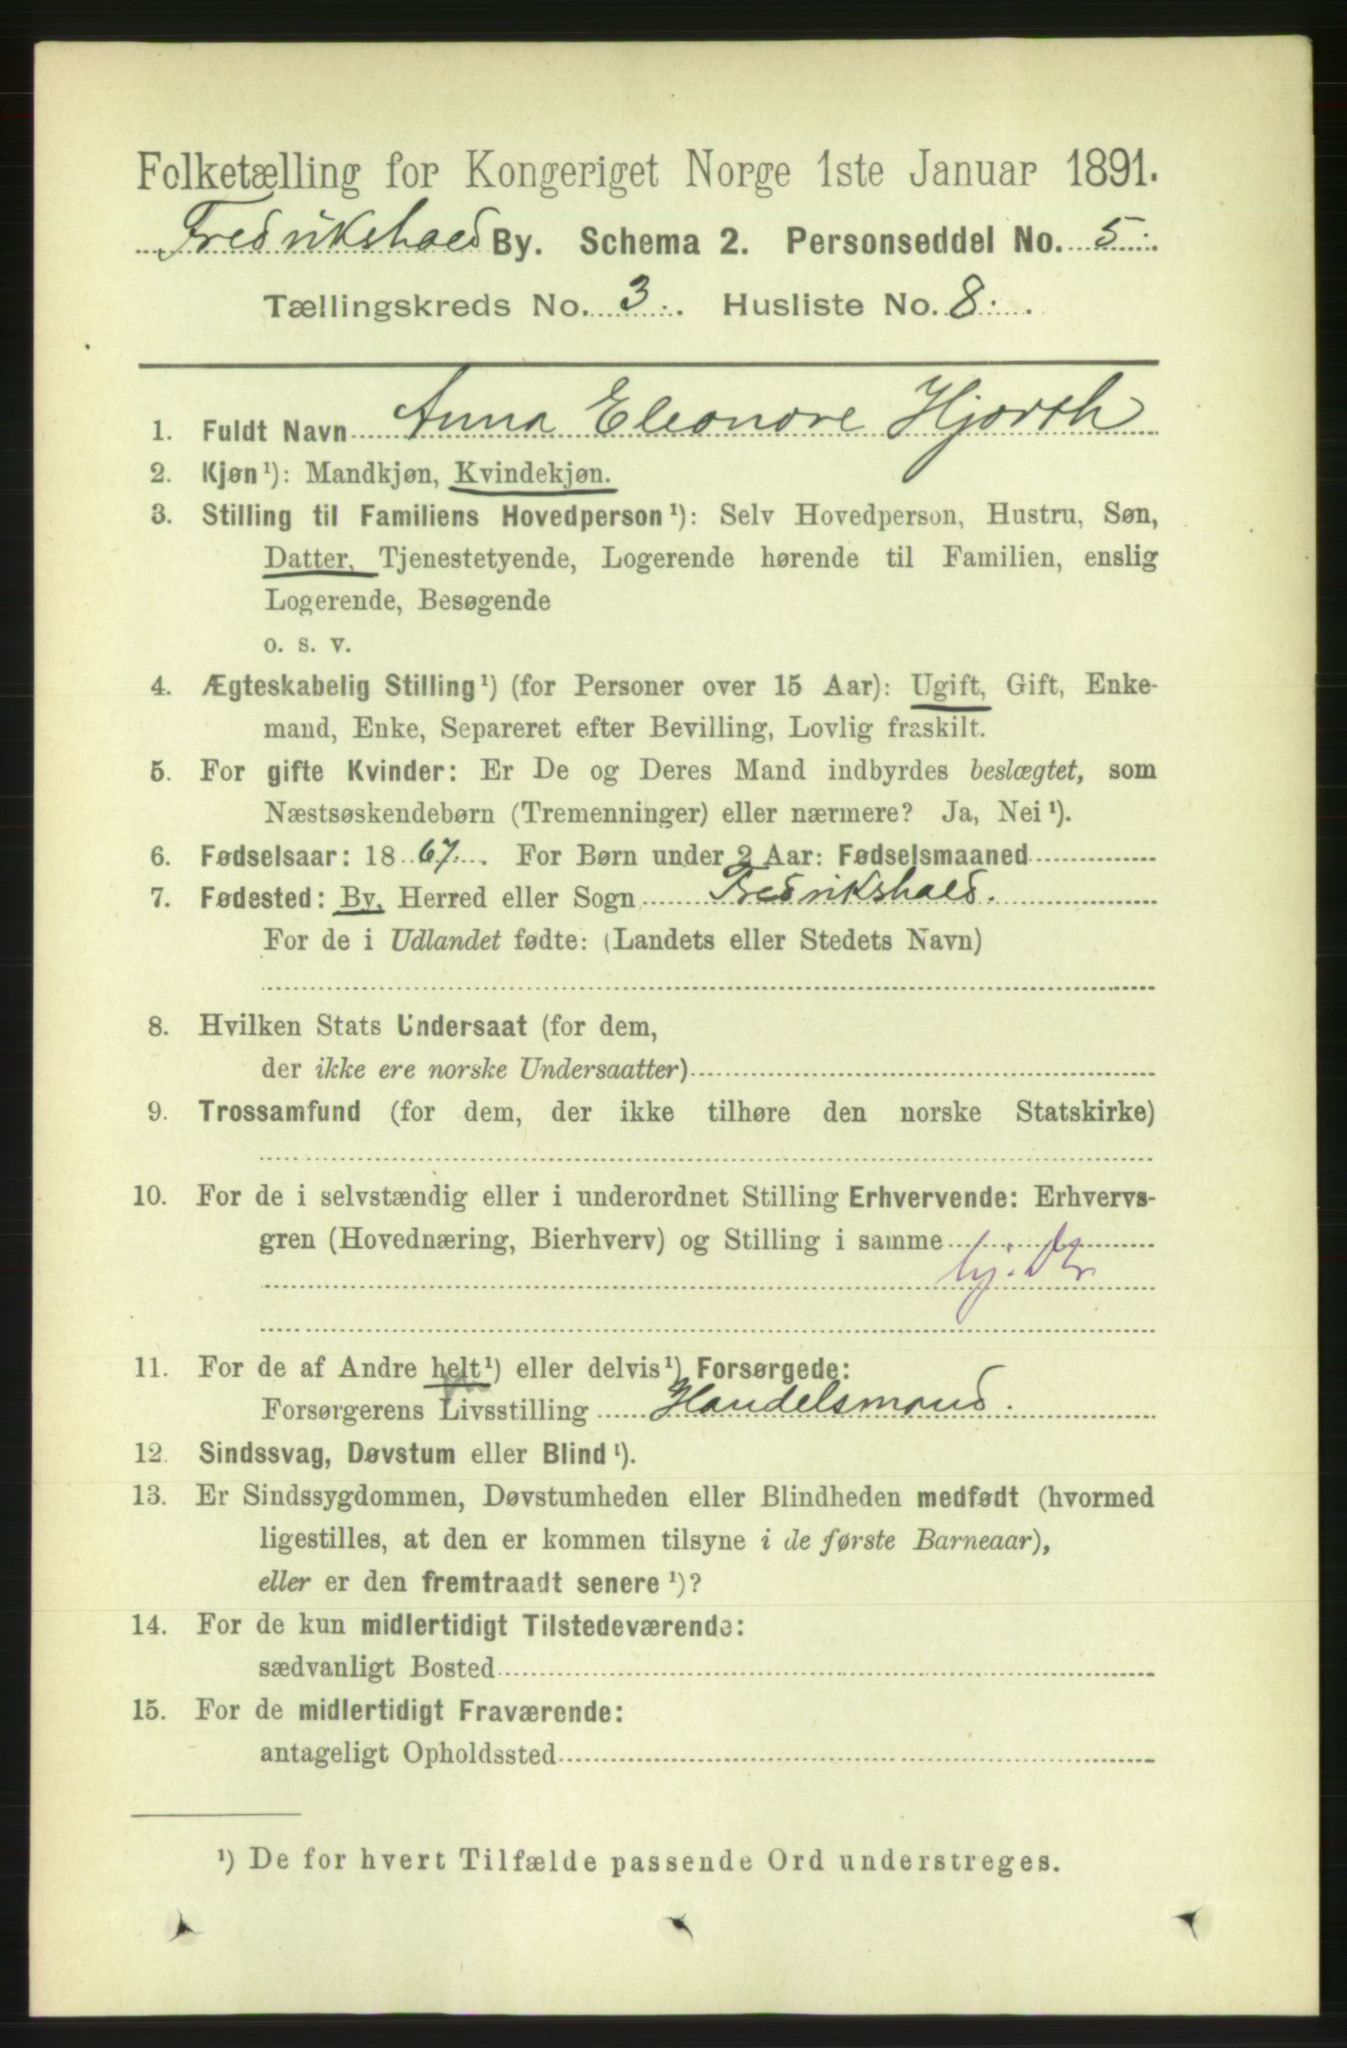 Folketælling for Kongeriget Norge 1ste Januar 1891.
Fredrikshald By. Schema 2. Personseddel No. 5.
Tællingskreds No. 3. Husliste No. 8.
1. Fuldt Navn Anna Eleonore Hjorth
2. Kjøn¹): Mandkjøn, Kvindekjøn.
3. Stilling til Familiens Hovedperson¹): Selv Hovedperson, Hustru, Søn,
Datter, Tjenestetyende, Logerende hørende til Familien, enslig
Logerende, Besøgende
o. s. v.
4. Ægteskabelig Stilling¹) (for Personer over 15 Aar): Ugift, Gift, Enke-
mand, Enke, Separeret efter Bevilling, Lovlig fraskilt.
5. For gifte Kvinder: Er De og Deres Mand indbyrdes beslægtet, som
Næstsøskendebørn (Tremenninger) eller nærmere? Ja, Nei¹).
6. Fødselsaar: 1867. For Børn under 2 Aar: Fødselsmaaned
7. Fødested: By, Herred eller Sogn Fredrikshald.
For de i Udlandet fødte: (Landets eller Stedets Navn)
8. Hvilken Stats Undersaat (for dem,
der ikke ere norske Undersaatter)
9. Trossamfund (for dem, der ikke tilhøre den norske Statskirke)
10. For de i selvstændig eller i underordnet Stilling Erhvervende: Erhvervs-
gren (Hovednæring, Bierhverv) og Stilling i samme
hj. Dtr
11. For de af Andre helt¹) eller delvis¹) Forsørgede:
Forsørgerens Livsstilling Handelsmand.
12. Sindssvag, Døvstum eller Blind¹).
13. Er Sindssygdommen, Døvstumheden eller Blindheden medfødt (hvormed
ligestilles, at den er kommen tilsyne i de første Barneaar),
eller er den fremtraadt senere¹)?
14. For de kun midlertidigt Tilstedeværende:
sædvanligt Bosted
15. For de midlertidigt Fraværende:
antageligt Opholdssted
¹) De for hvert Tilfælde passende Ord understreges.